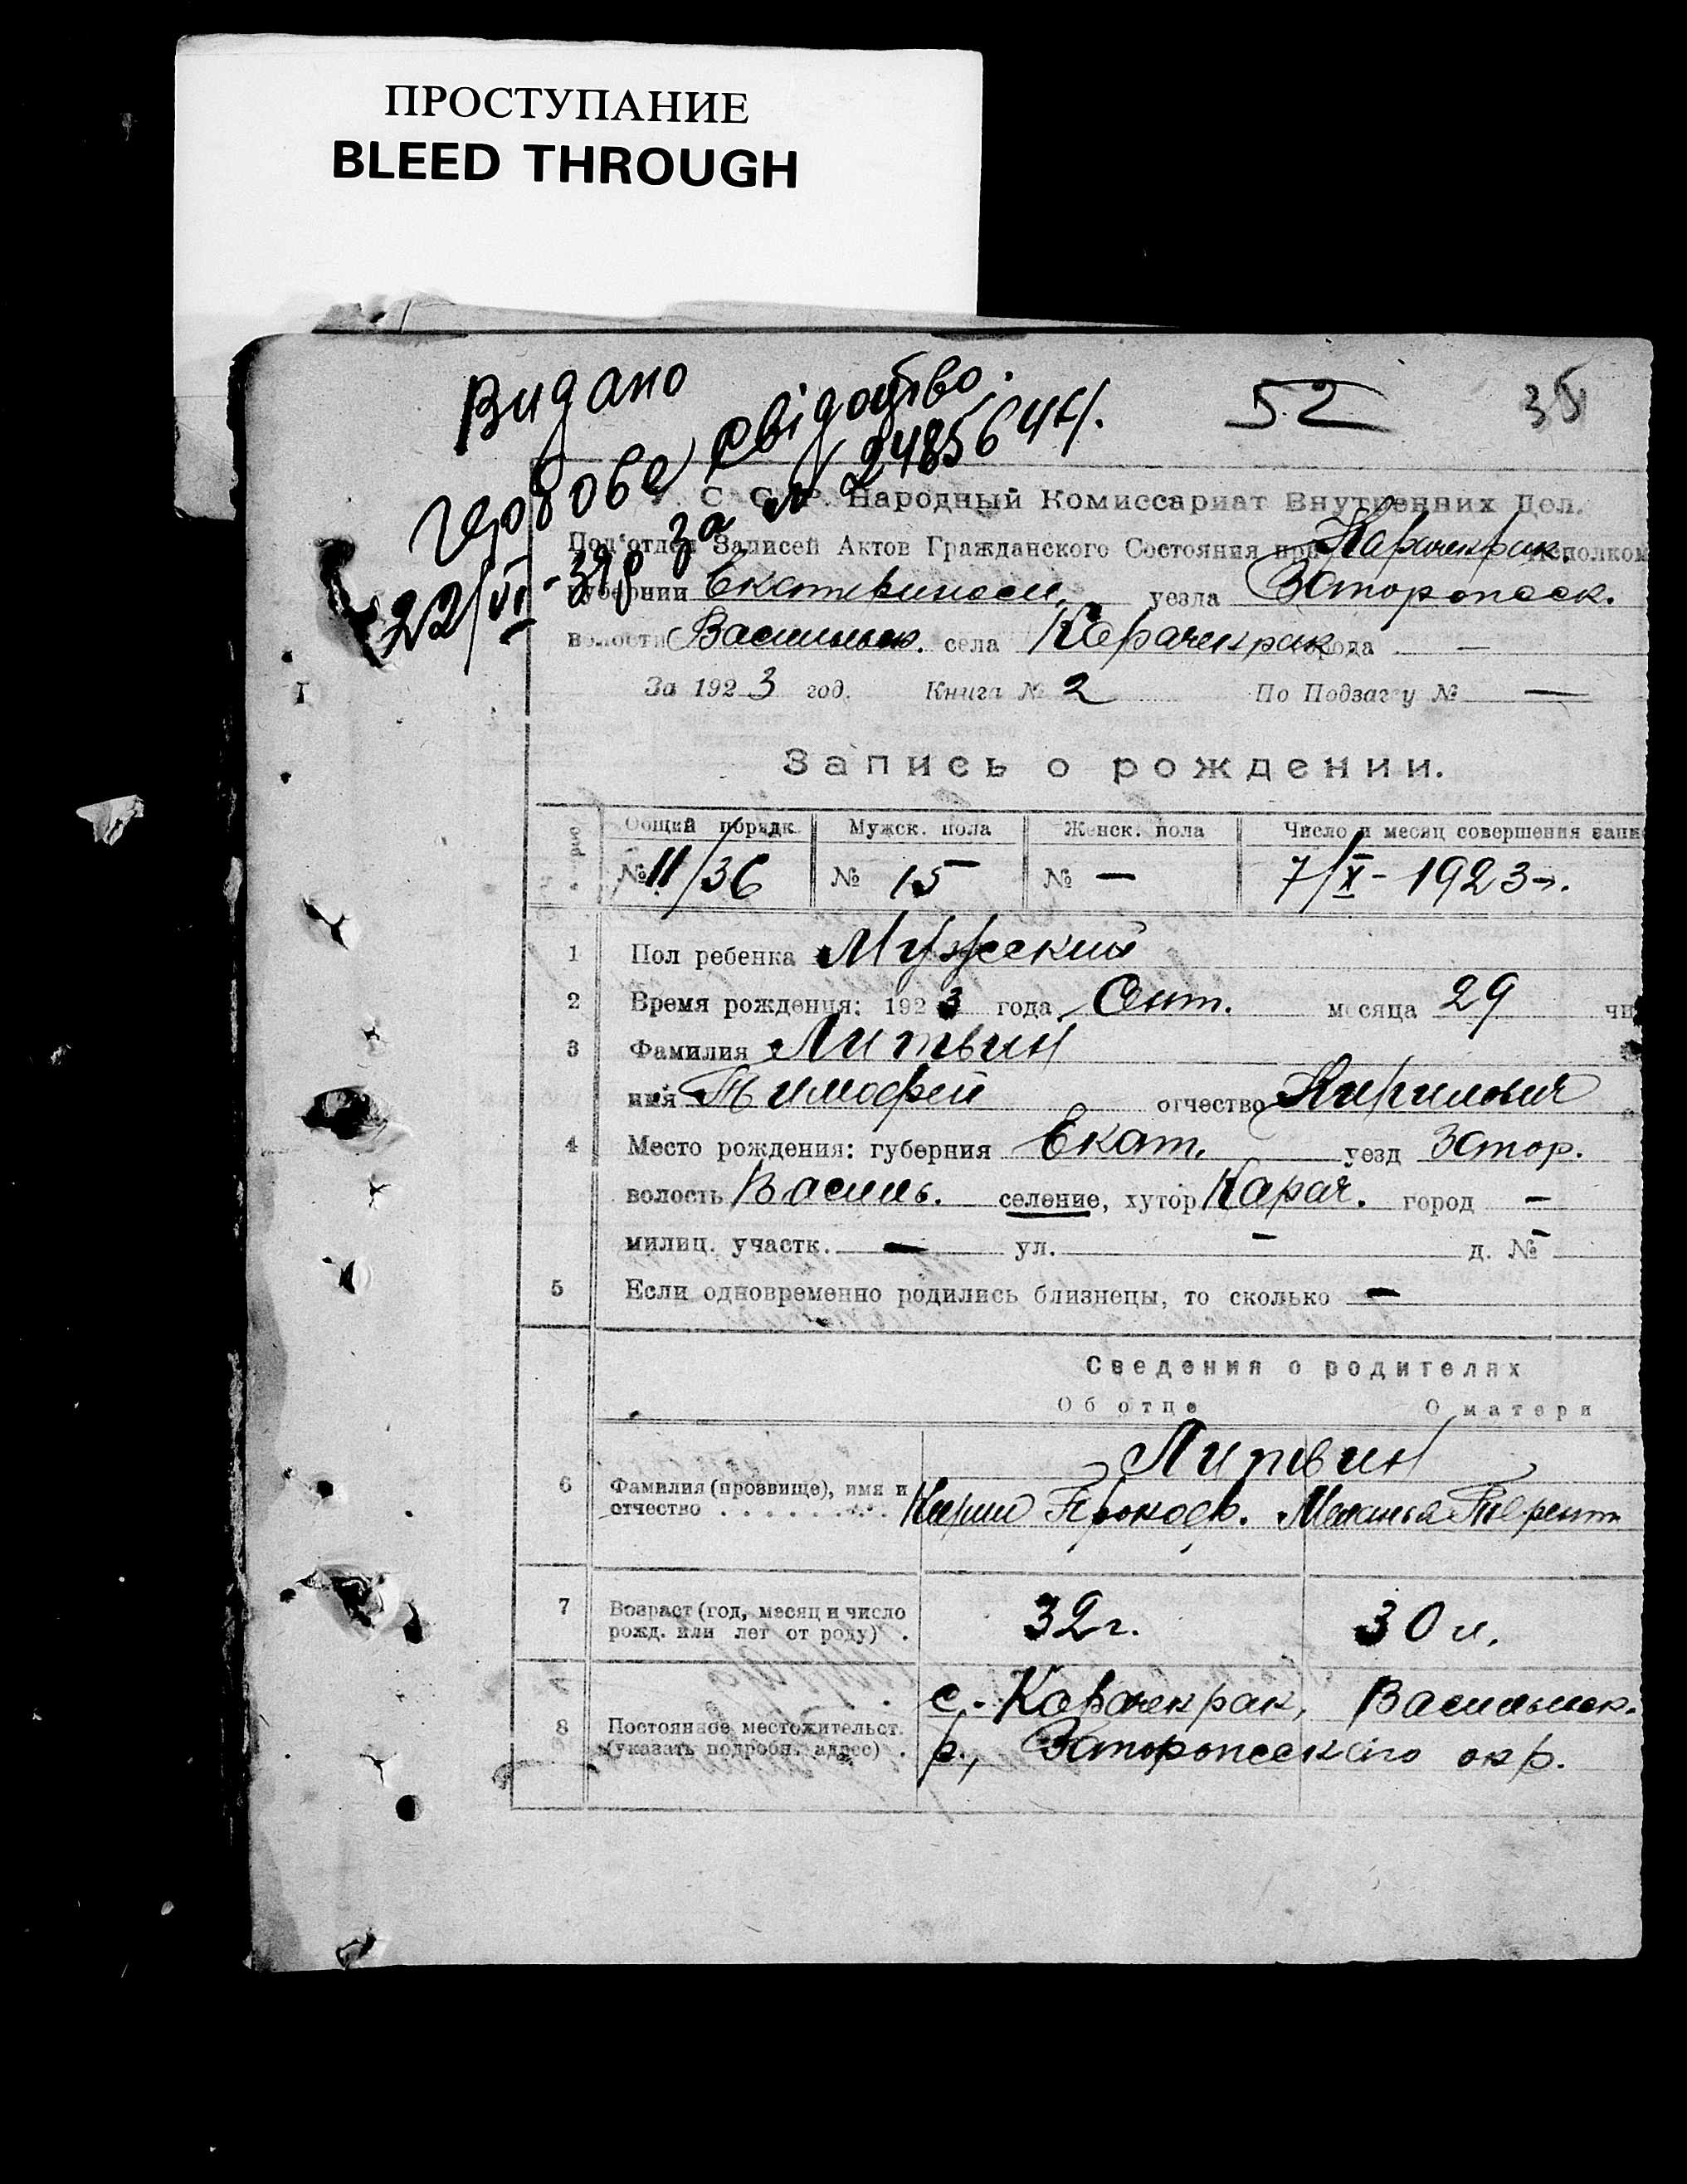 ПРОСТУПАНИЕ
BLEED THROUGH
Видано
гербове свідоцтво.
за № 2485644
22/VI-39р
52 35
С. С. Р. Народный Комиссариат Внутренних Дел.
Под'отдел Записей Актов Гражданского Состояния при Карачекрак. исполком
губернии Екатериносл. уезда Запорожск.
волости Васильевск. села Карачекрак города —
За 1923 год. Книга № 2 По Подзагсу № —
Запись о рождении.
Общий порядк. Мужск. пола Женск. пола Число и месяц совершения запис
№ 11/36 № 15 № — 7/X - 1923 г.
1 Пол ребенка Мужеский
2 Время рождения: 1923 года Сент. месяца 29 чи
3 Фамилия Литвин
имя Тимофей отчество Кирилович
4 Место рождения: губерния Екат. уезд Запор.
волость Василь. селение, хутор Карач. город —
милиц. участк. — ул. — д. № —
5 Если одновременно родились близнецы, то сколько —
Сведения о родителях
Об отце О матери
Литвин
6 Фамилия (прозвище), имя и
отчество . . . . . . . . Кирил Прокоф. Маланья Терент
7 Возраст (год, месяц и число
рожд. или лет от роду) . 32 г. 30 л.
8 Постоянное местожительст.
(указать подробн. адрес) .
с. Карачекрак, Васильевск.
р., Запорожского окр.